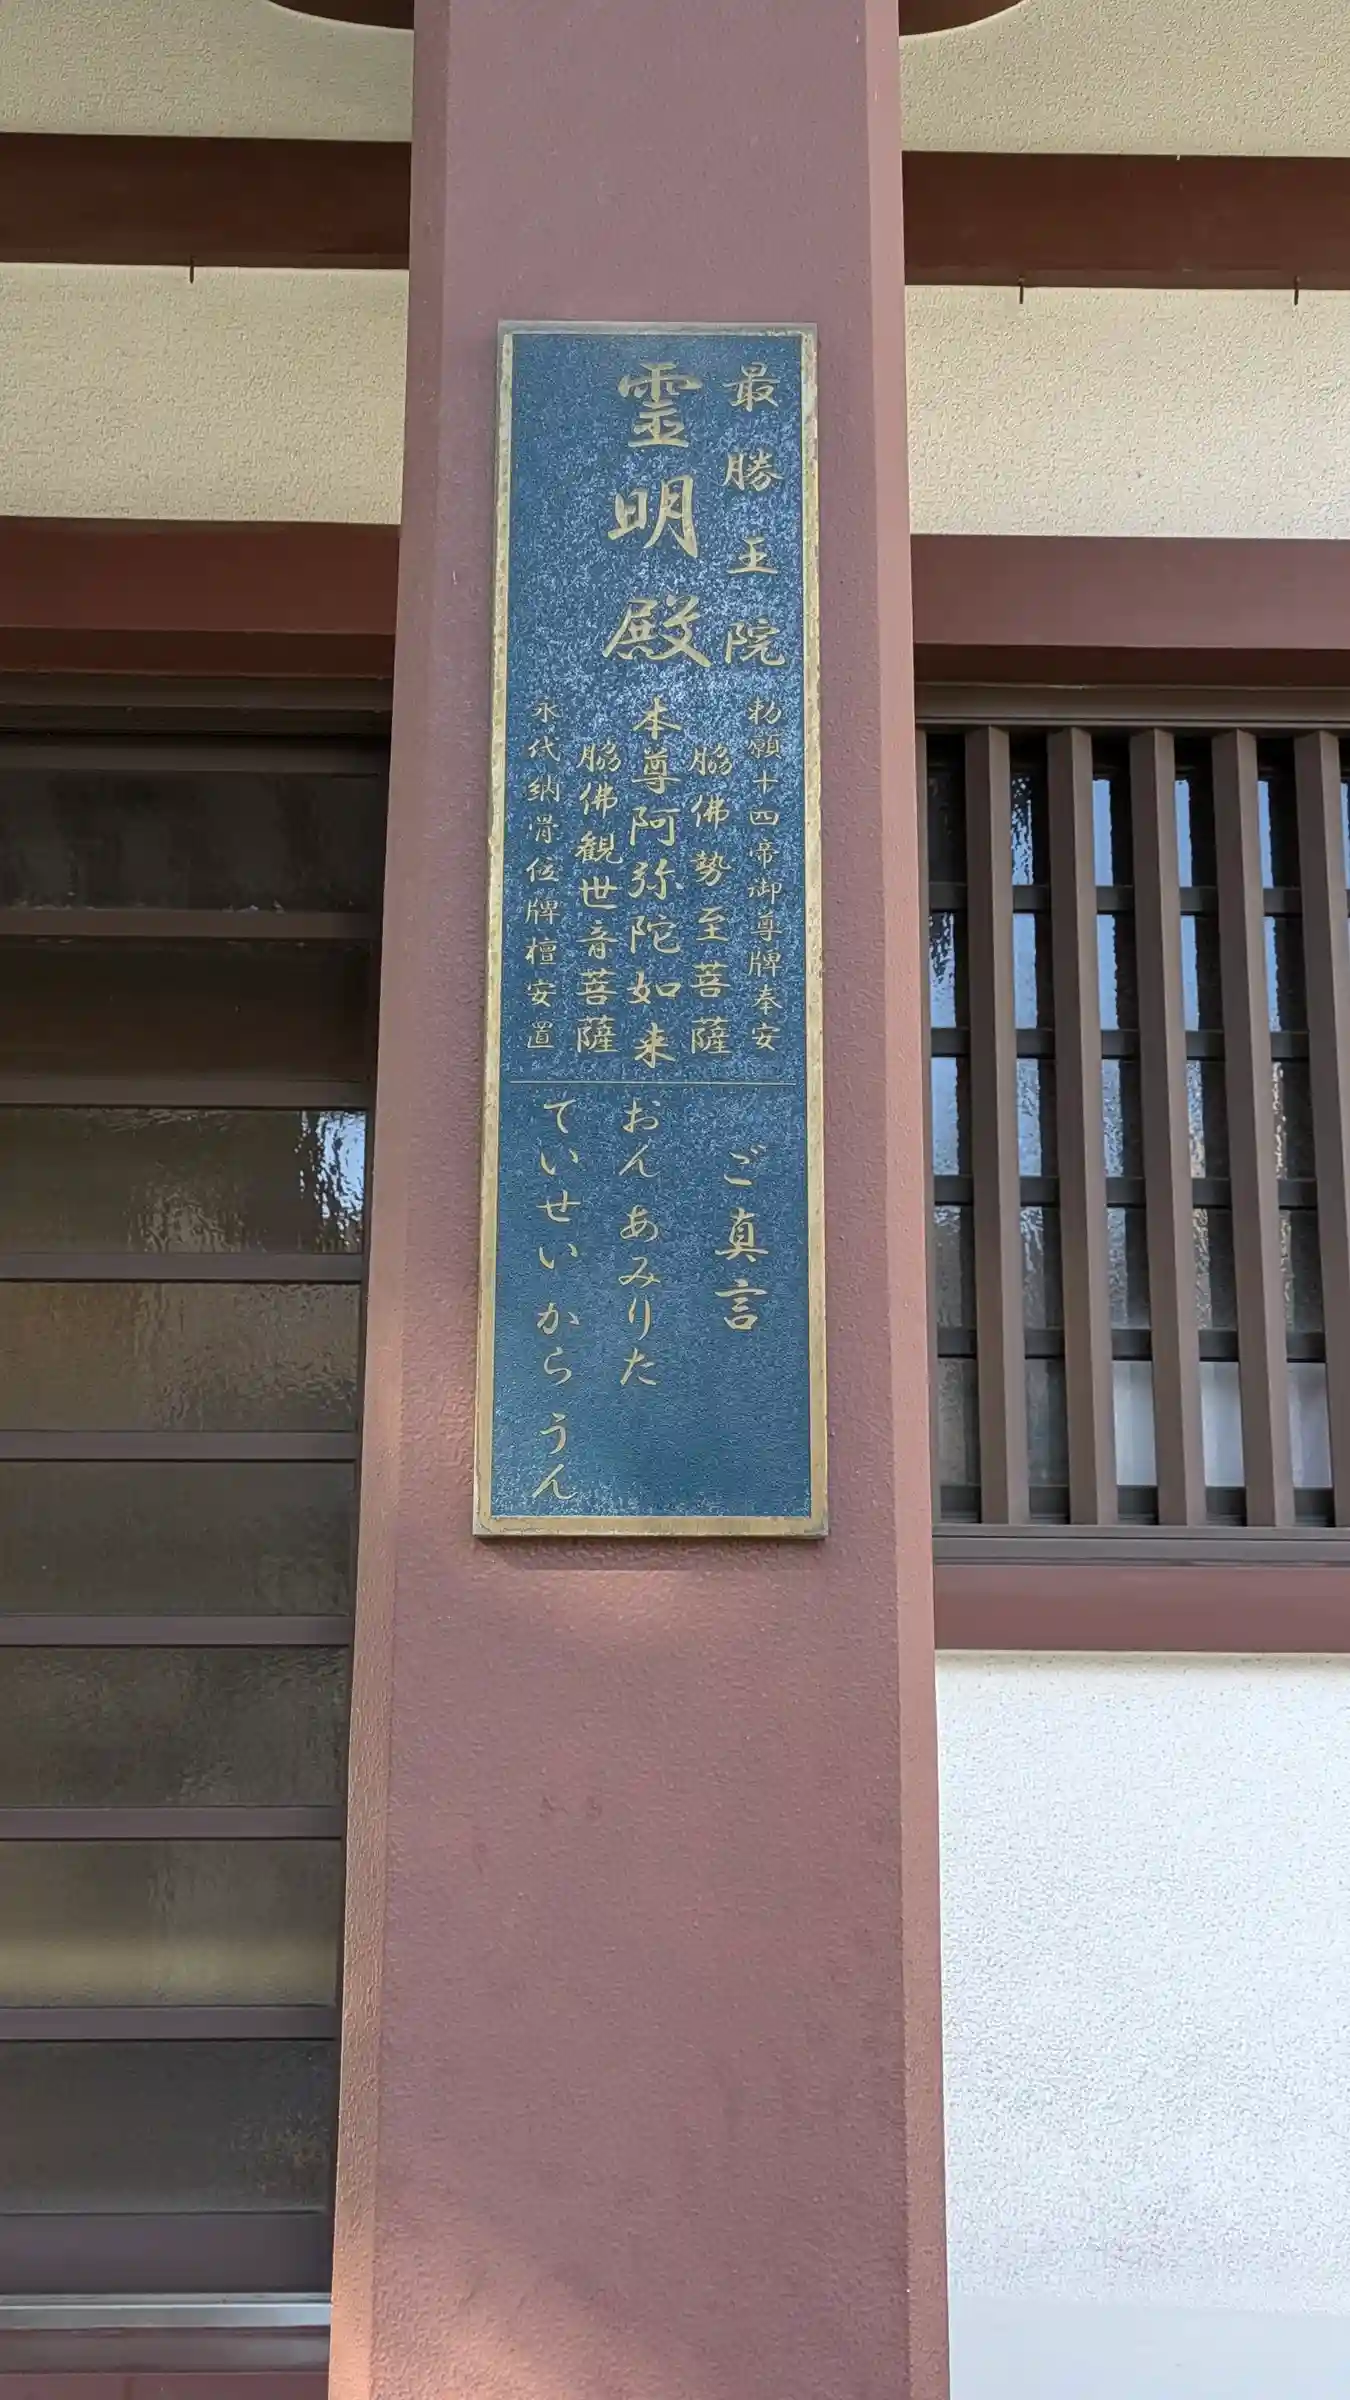 最勝王院
霊明殿
勅願十四帝御尊牌奉安
脇佛勢至菩薩
本尊阿弥陀如来
脇佛観世音菩薩
永代納骨位牌檀安置
ご真言
おん あみりた
ていせい から うん